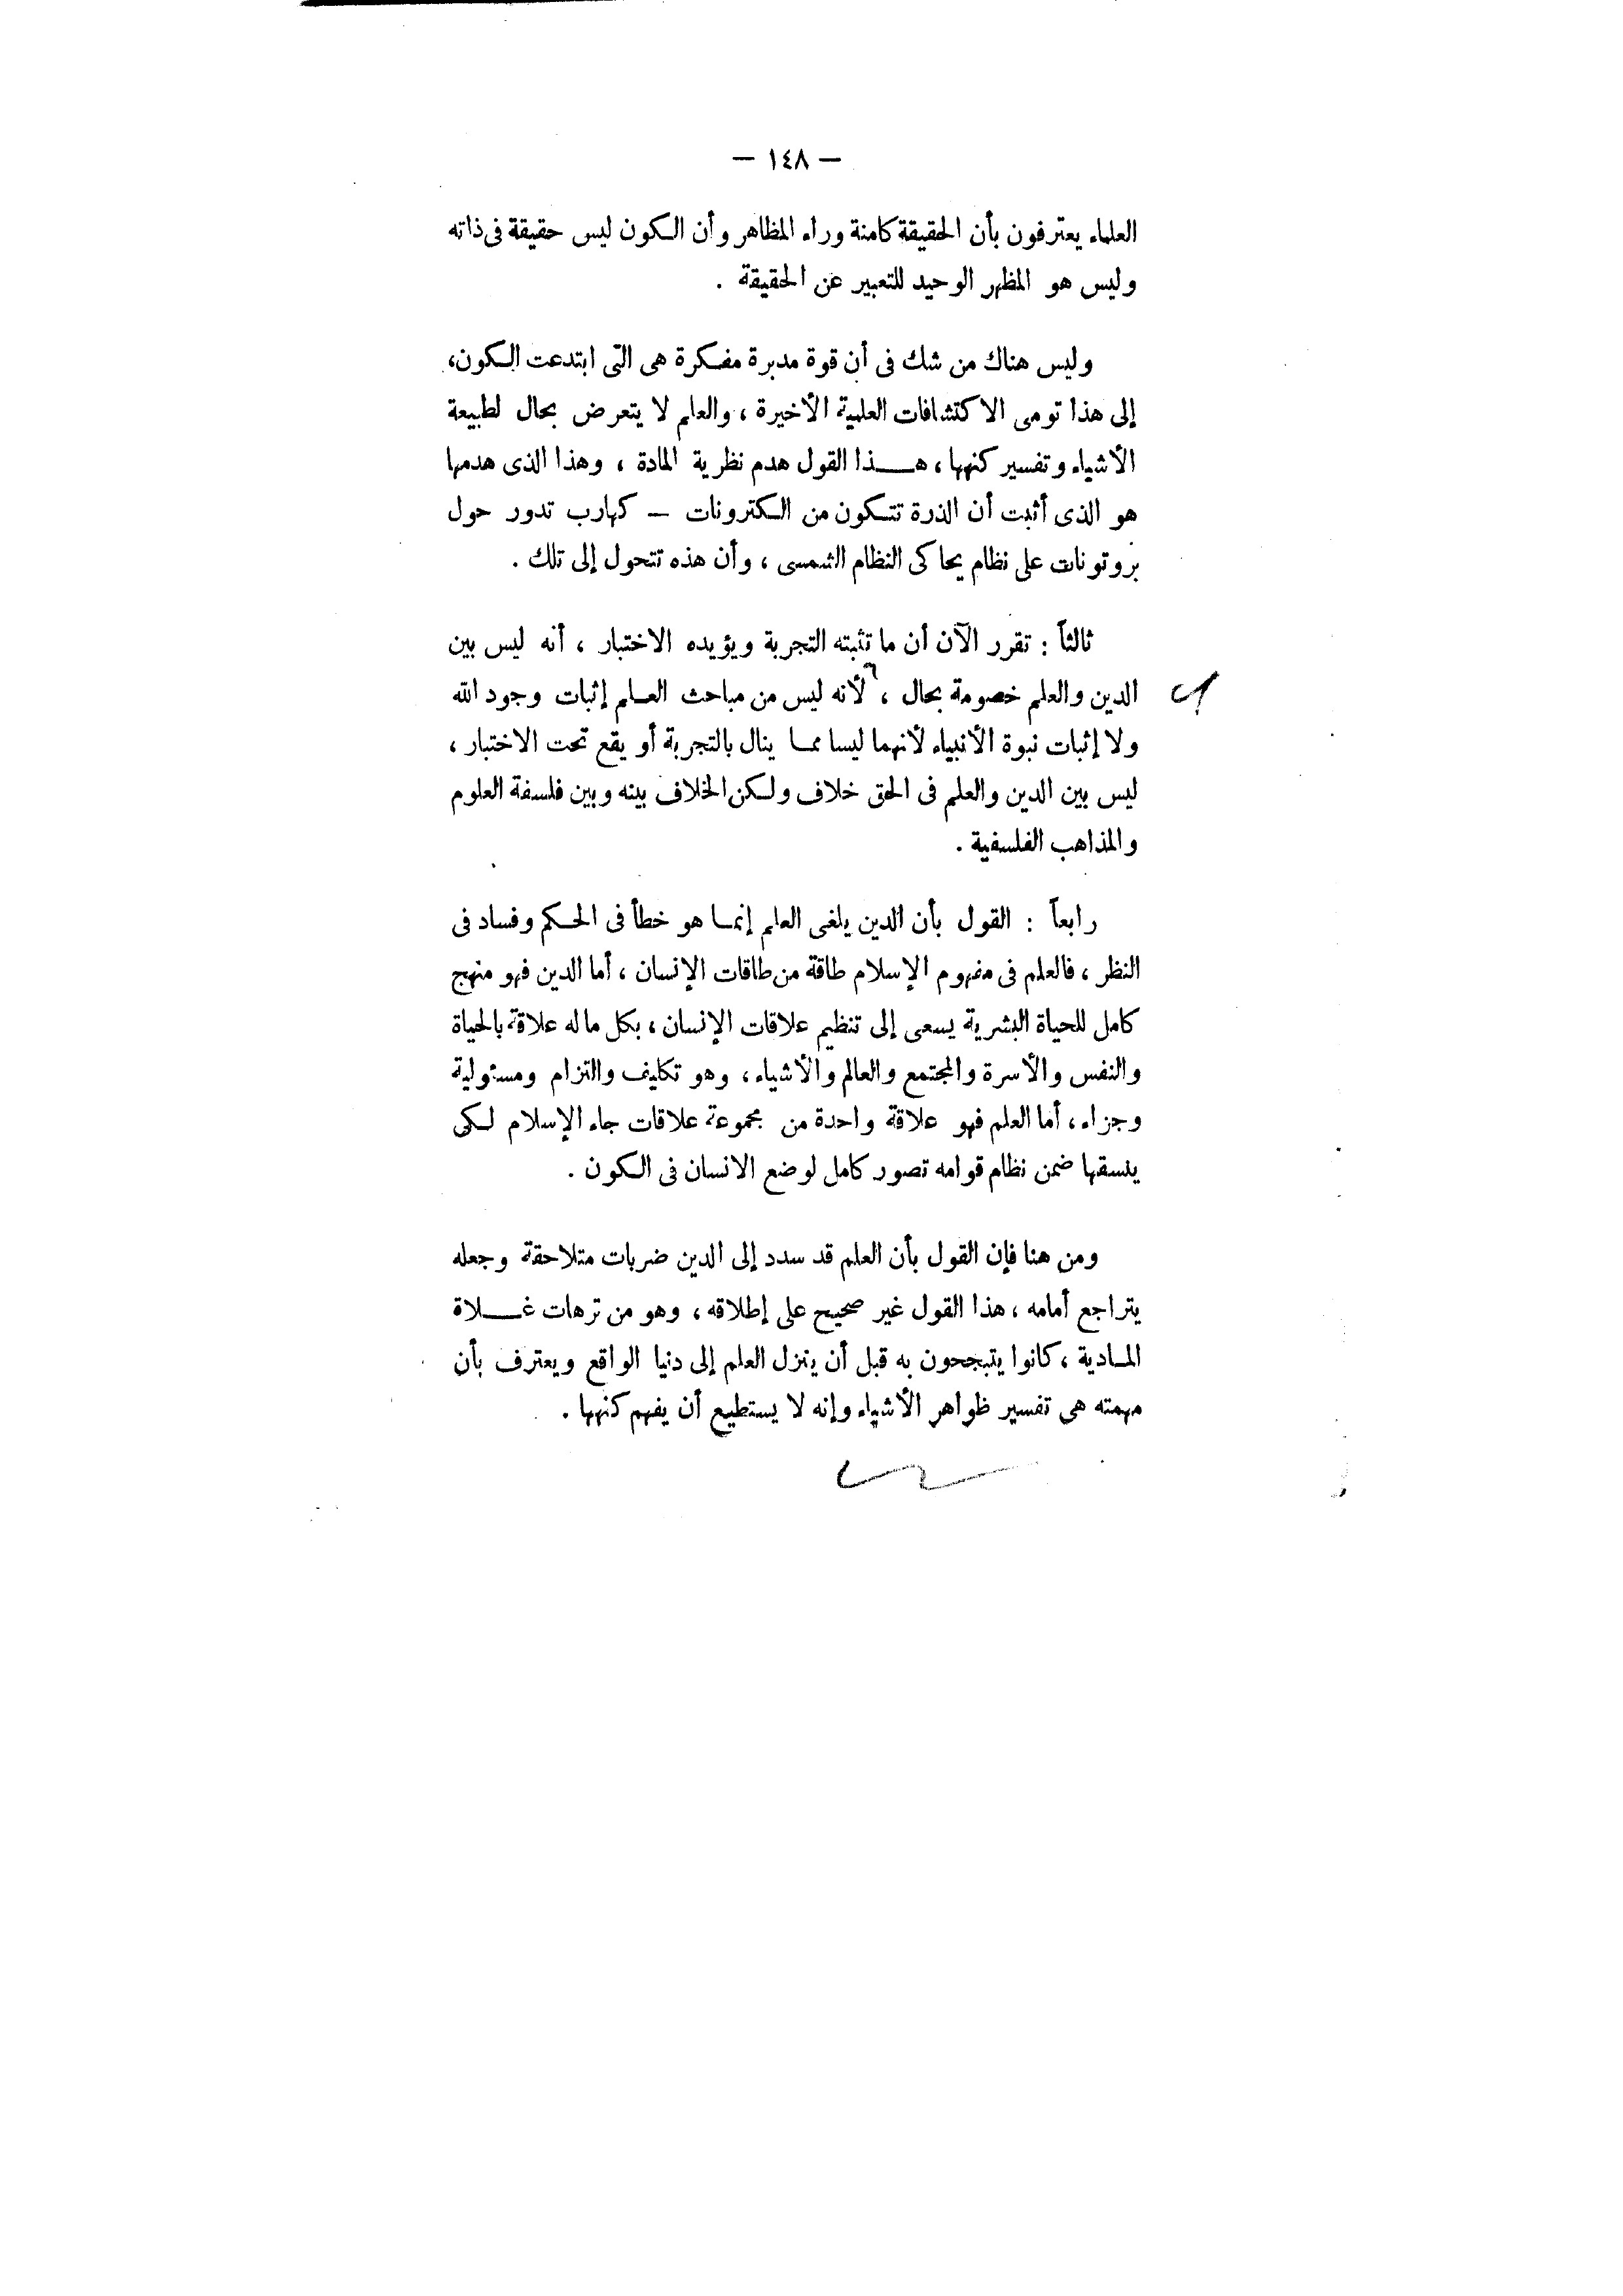 — ١٤٨ —
العلماء يعترفون بأن الحقيقة كامنة وراء المظاهر وأن الكون ليس حقيقة فى ذاته
وليس هو المظهر الوحيد للتعبير عن الحقيقة .
وليس هناك من شك فى أن قوة مدبرة مفكرة هى التى ابتدعت الكون،
إلى هذا تومى الاكتشافات العلمية الأخيرة ، والعلم لا يتعرض بحال لطبيعة
الأشياء وتفسير كنهها ، هذا القول هدم نظرية المادة ، وهذا الذى هدمها
هو الذى أثبت أن الذرة تتكون من الكترونات — كهارب تدور حول
بروتونات على نظام يحاكى النظام الشمسى ، وأن هذه تتحول إلى تلك .
ثالثاً : تقرر الآن أن ما تثبته التجربة ويؤيده الاختبار ، أنه ليس بين
الدين والعلم خصومة بحال ، لأنه ليس من مباحث العلم إثبات وجود الله
ولا إثبات نبوة الأنبياء لأنهما ليسا مما ينال بالتجربة أو يقع تحت الاختبار ،
ليس بين الدين والعلم فى الحق خلاف ولكن الخلاف بينه وبين فلسفة العلوم
والمذاهب الفلسفية .
رابعاً : القول بأن الدين يلغى العلم إنما هو خطأ فى الحكم وفساد فى
النظر ، فالعلم فى مفهوم الإسلام طاقة من طاقات الإنسان ، أما الدين فهو منهج
كامل للحياة البشرية يسعى إلى تنظيم علاقات الإنسان ، بكل ما له علاقة بالحياة
والنفس والأسرة والمجتمع والعالم والأشياء ، وهو تكليف والتزام ومسئولية
وجزاء ، أما العلم فهو علاقة واحدة من مجموعة علاقات جاء الإسلام لكى
ينسقها ضمن نظام قوامه تصور كامل لوضع الانسان فى الكون .
ومن هنا فإن القول بأن العلم قد سدد إلى الدين ضربات متلاحقة وجعله
يتراجع أمامه ، هذا القول غير صحيح على إطلاقه ، وهو من ترهات غلاة
المادية ، كانوا يتبجحون به قبل أن ينزل العلم إلى دنيا الواقع ويعترف بأن
مهمته هى تفسير ظواهر الأشياء وإنه لا يستطيع أن يفهم كنهها .